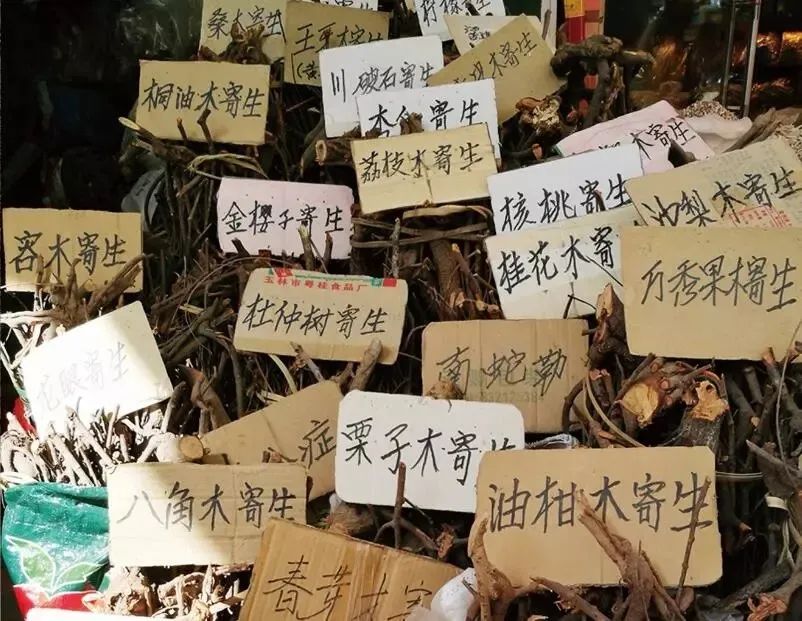 桑木寄生
桐油木寄生
川破石寄生
木寄生
荔枝木寄生
木寄生
核桃寄生
沙梨木寄生
金櫻子寄生
桂花木寄
容木寄生
玉林市粤桂食品厂
杜仲树寄生
万秀果木寄生
龙眼寄生
南蛇勒
症
栗子木寄生
八角木寄生
油柑木寄生
春芽木寄